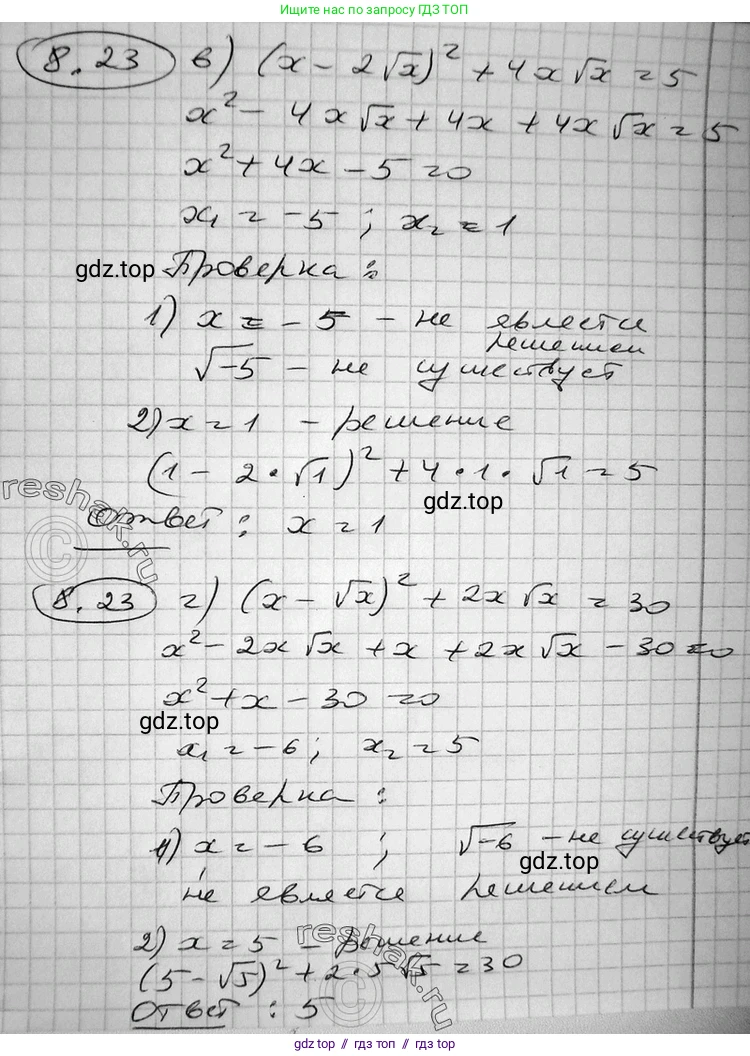 Ищите нас по запросу ГДЗ ТОП
8.23 в) (x - 2√x)² + 4x√x = 5
x² - 4x√x + 4x + 4x√x = 5
x² + 4x - 5 = 0
x₁ = -5 ; x₂ = 1
gdz.top Проверка :
1) x = -5 - не явлести
решением
√-5 - не существует
2) x = 1 - решение
(1 - 2·√1)² + 4·1·√1 = 5
gdz.top
reshak.ru
Ответ : x = 1
8.23 г) (x - √x)² + 2x√x = 30
x² - 2x√x + x + 2x√x - 30 = 0
x² + x - 30 = 0
gdz.top
x₁ = -6 ; x₂ = 5
Проверка :
1) x = -6 ; √-6 - не существует
gdz.top
не является решением
2) x = 5 - решение
(5 - √5)² + 2·5√5 = 30
reshak.ru
Ответ : 5
gdz.top // гдз топ // гдз.top